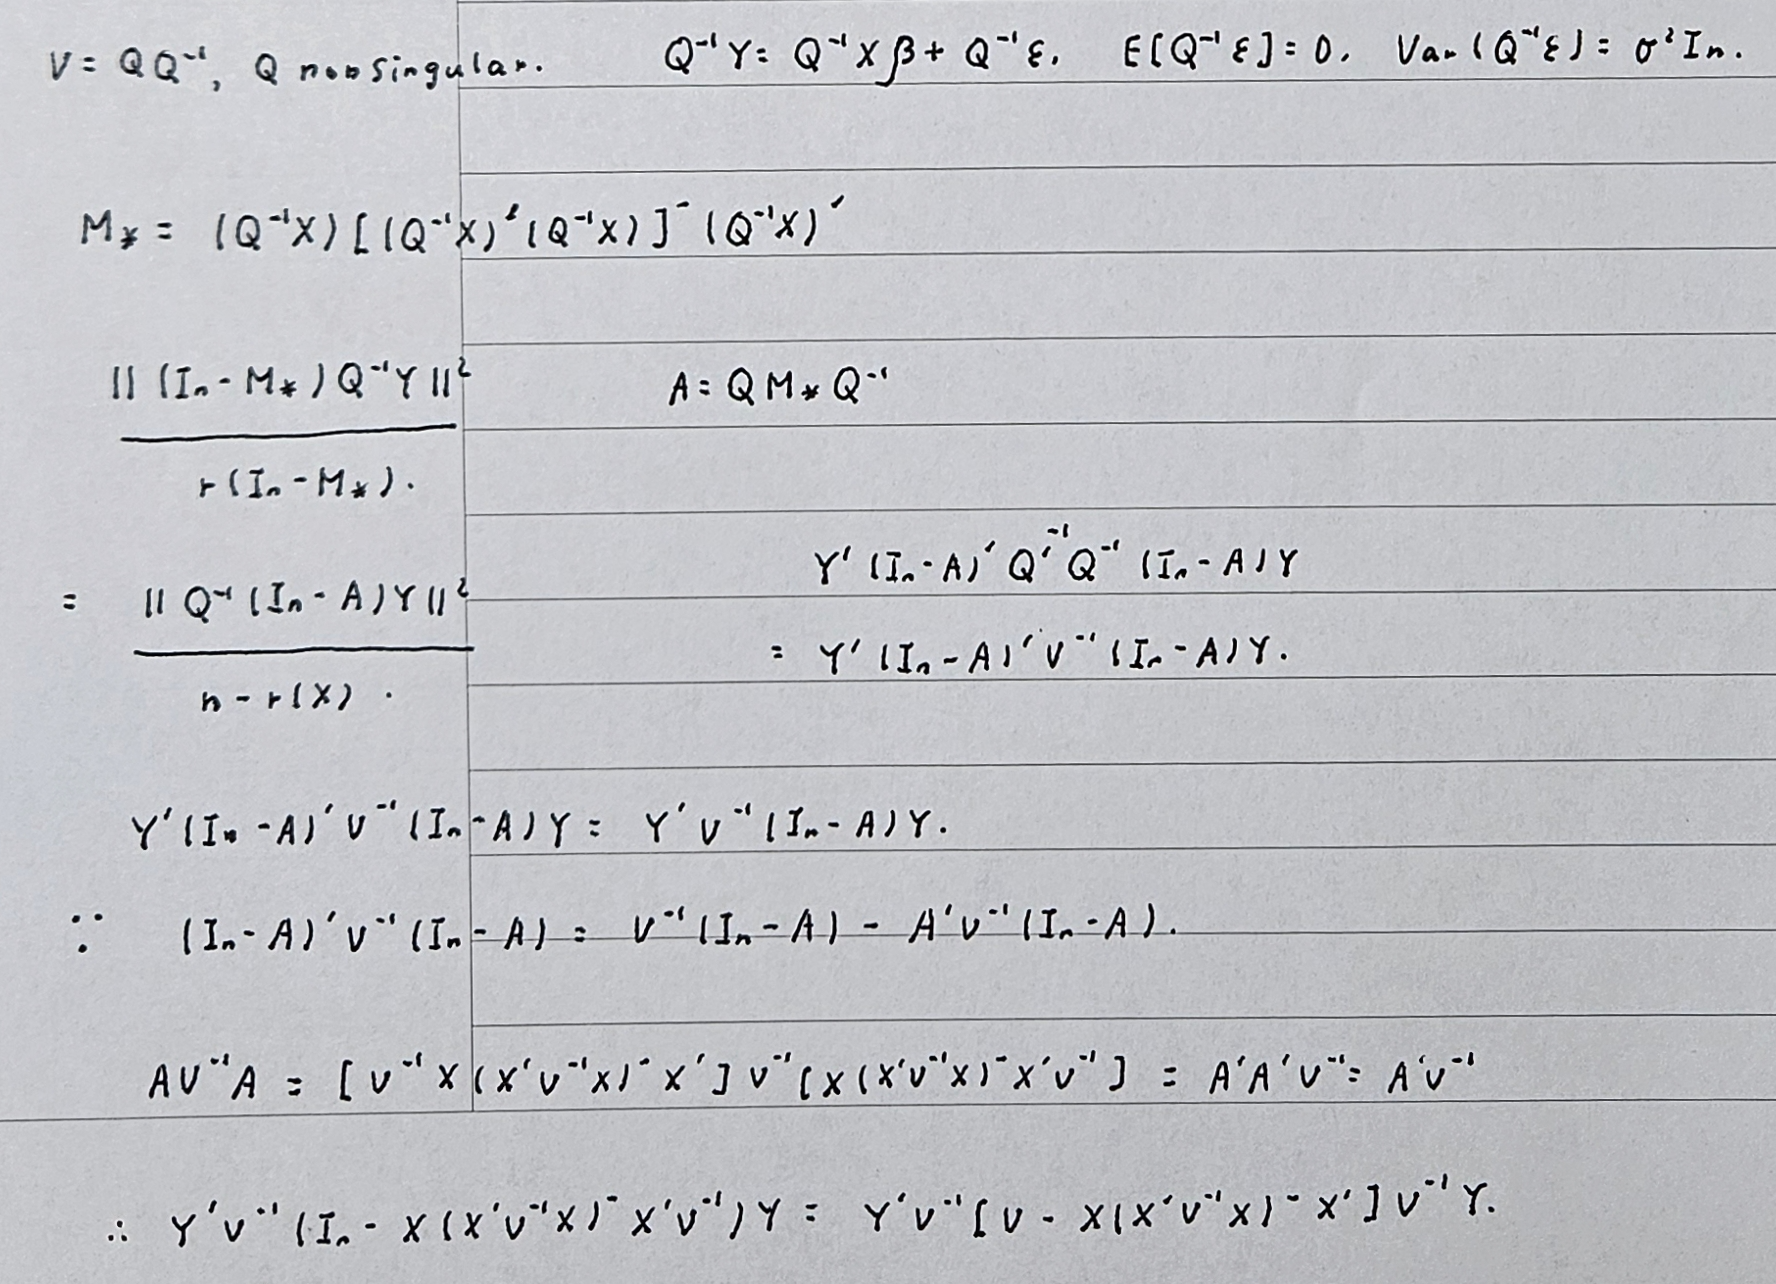 V = QQ⁻¹, Q nonsingular. Q⁻¹Y = Q⁻¹Xβ + Q⁻¹ε. E[Q⁻¹ε] = 0. Var(Q⁻¹ε) = σ²Iₙ.
M* = (Q⁻¹X)[(Q⁻¹X)'(Q⁻¹X)]⁻(Q⁻¹X)'
||(Iₙ - M*)Q⁻¹Y||² A = QM*Q⁻¹
r(Iₙ - M*).
Y'(Iₙ - A)'Q'⁻¹Q⁻¹(Iₙ - A)Y
= ||Q⁻¹(Iₙ - A)Y||²
= Y'(Iₙ - A)'V⁻¹(Iₙ - A)Y.
n - r(X).
Y'(Iₙ - A)'V⁻¹(Iₙ - A)Y = Y'V⁻¹(Iₙ - A)Y.
∵ (Iₙ - A)'V⁻¹(Iₙ - A) = V⁻¹(Iₙ - A) - A'V⁻¹(Iₙ - A).
AV⁻¹A = [V⁻¹X(X'V⁻¹X)⁻X']V⁻¹[X(X'V⁻¹X)⁻X'V⁻¹] = A'A'V⁻¹ = A'V⁻¹
∴ Y'V⁻¹(Iₙ - X(X'V⁻¹X)⁻X'V⁻¹)Y = Y'V⁻¹[V - X(X'V⁻¹X)⁻X']V⁻¹Y.